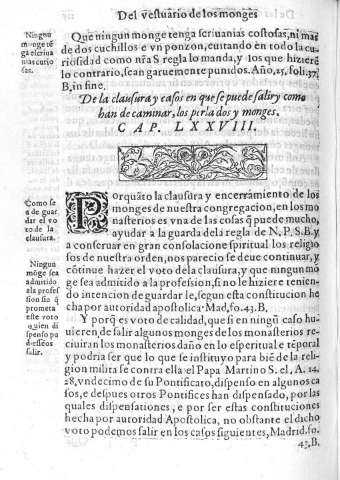 Del vestuario de los monges
Ningun
monge tẽ
ga escriua
nias curio
sas.
Que ningun monge tenga scriuanias costosas, ni mas
de dos cuchillos e vn ponzon, euitando en todo la cu
riosidad como nr̃a S regla lo manda, y los que hizierẽ
lo contrario, sean garuemente punidos. Año, 25, foli. 37,
B, in fine.
De la clausura y casos en que se puede salir y como
han de caminar, los perlados y monges.
CAP. LXXVIII.
Como se
a de guar
dar el vo
to de la
clausura.
Ningun
mõge sea
admitido
ala profes
sion sin q̃
prometa
este voto
quien di
spenso pa
desseos
salir.
Porquãto la clausura y encerramiento de los
monges de nuestra congregacion, en los mo
nasterios es vna de las cosas q̃ puede mucho,
ayudar a la guarda dela regla de N. P. S. B. y
a conseruar en gran consolacione spiritual los religio
sos de nuestra orden, nos parecio se deue continuar, y
cõtinue hazer el voto dela clausura, y que ningun mo
ge sea admitido a la professiõ, si no le hiziere tenien-
do intencion de guardar le, segun esta constitucion he
cha por autoridad apostolica. Mad, fo. 43. B,
Y porq̃ es voto de calidad, que si en ningũ caso hu
uieren, de salir algunos monges de los monasterios re-
ciuiran los monasterios daño en lo espiritual e tẽporal
y podria ser que lo que se instituyo para biẽ de la reli-
gion milita se contra ella el Papa Martino S. el, A. 14,
28, vndecimo de su Pontificato, dispenso en algunos ca
sos, e despues otros Pontifices han dispensado, por las
quales dispensationes, e por ser estas constituciones
hecha por autoridad Apostolica, no obstante el dicho
voto podemos salir en los casos siguientes, Madrid. fo.
43, B.